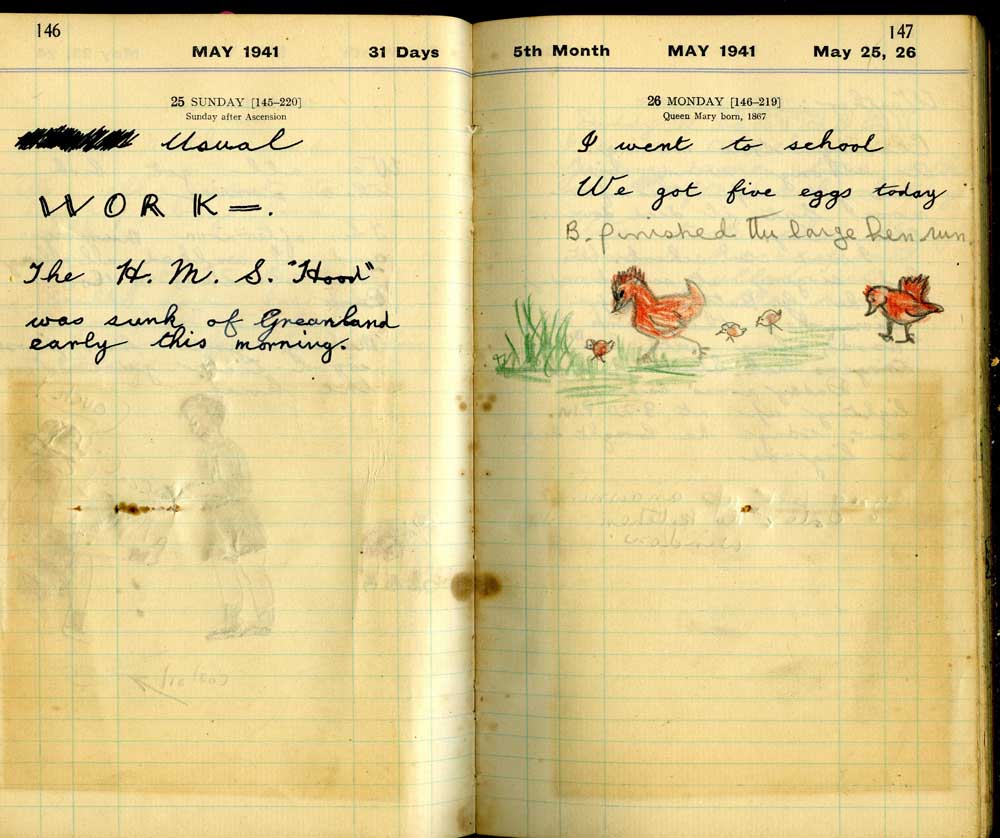 146
MAY 1941 31 Days
25 SUNDAY [145–220]
Sunday after Ascension
Usual
WORK=.
The H. M. S. "Hood"
was sunk of Greanland
early this morning.
147
5th Month MAY 1941 May 25, 26
26 MONDAY [146–219]
Queen Mary born, 1867
I went to school
We got five eggs today
B. finished the large hen run.